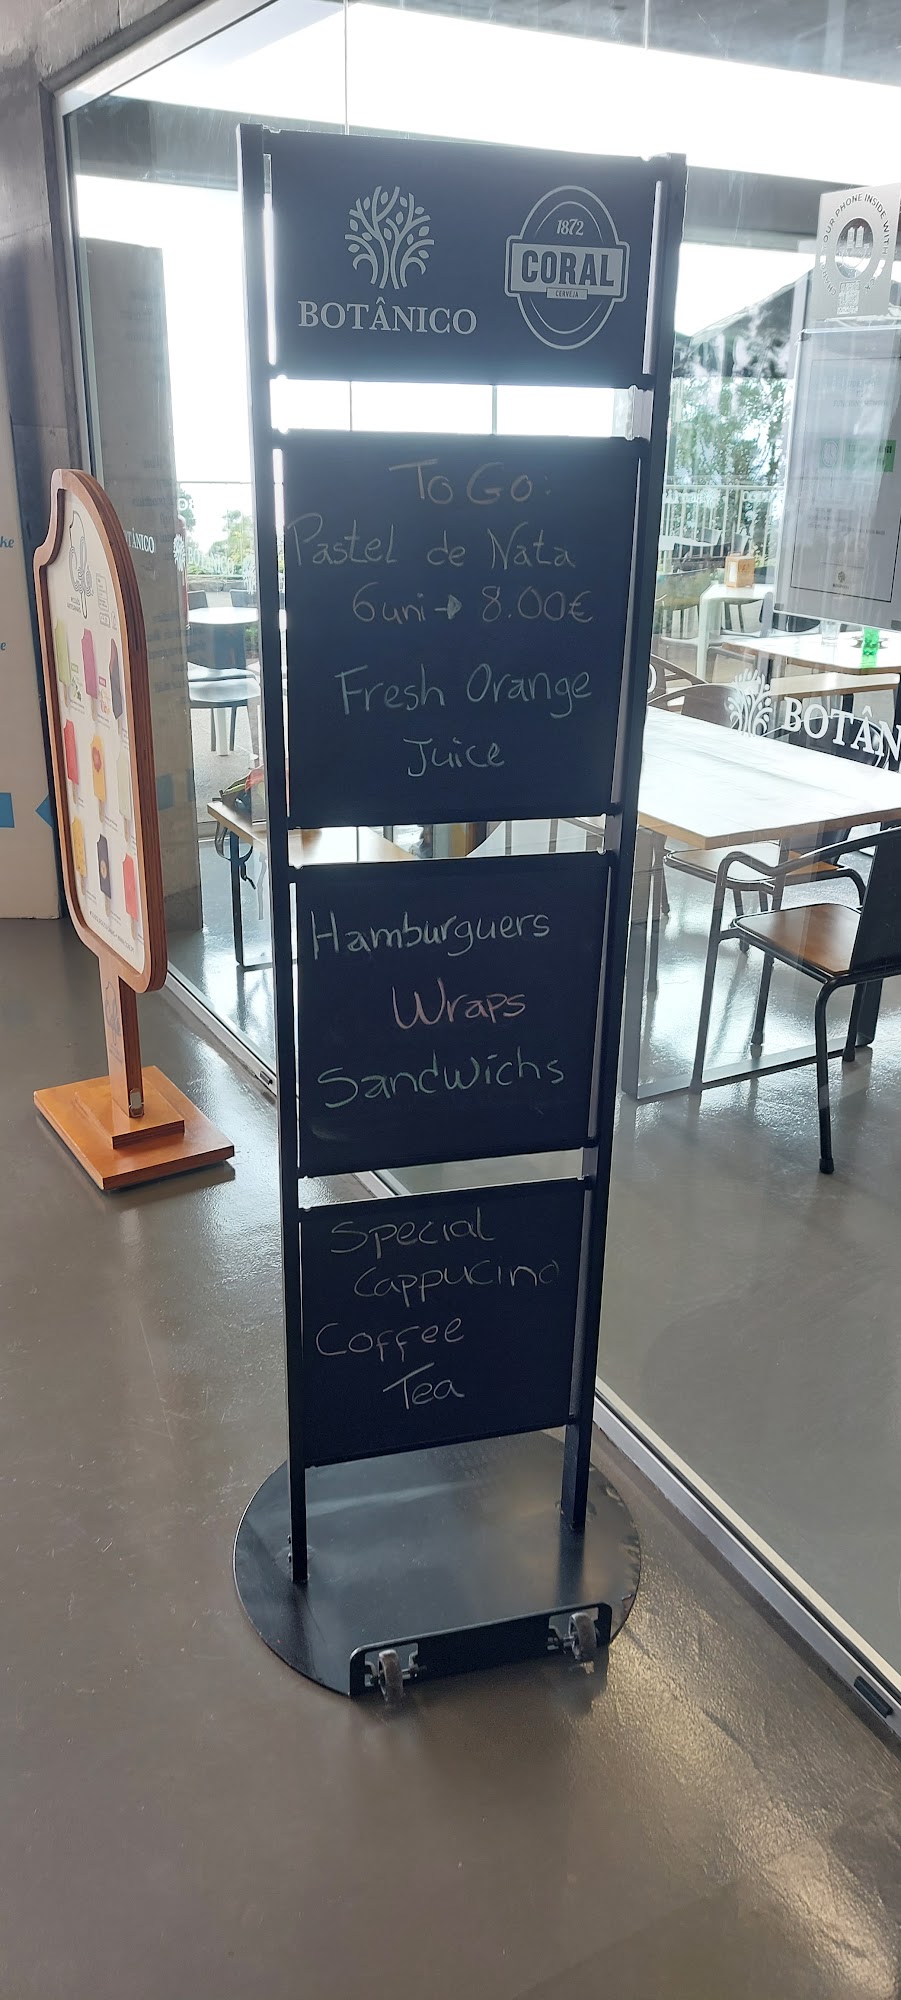 BOTÂNICO
1872
CORAL
CERVEJA
To Go:
Pastel de Nata
6 uni → 8.00€
Fresh Orange
Juice
Hamburguers
Wraps
Sandwichs
Special
Cappucino
Coffee
Tea
OUR PHONE INSIDE WITH
BOTÂN